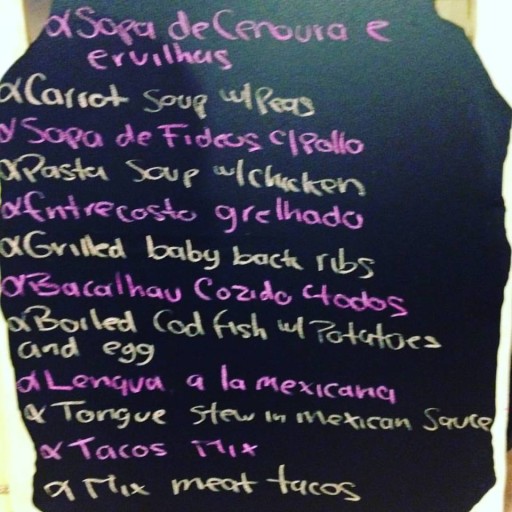 Sopa de Cenoura e
ervilhas
Carrot Soup w/Peas
Sopa de Fideus c/Pollo
Pasta Soup w/chicken
Entrecosto grelhado
Grilled baby back ribs
Bacalhau Cozido
Boiled Cod fish w/ Potatoes
and egg
Lengua a la mexicana
Tongue Stew in Mexican Sauce
Tacos Mix
Mix meat tacos